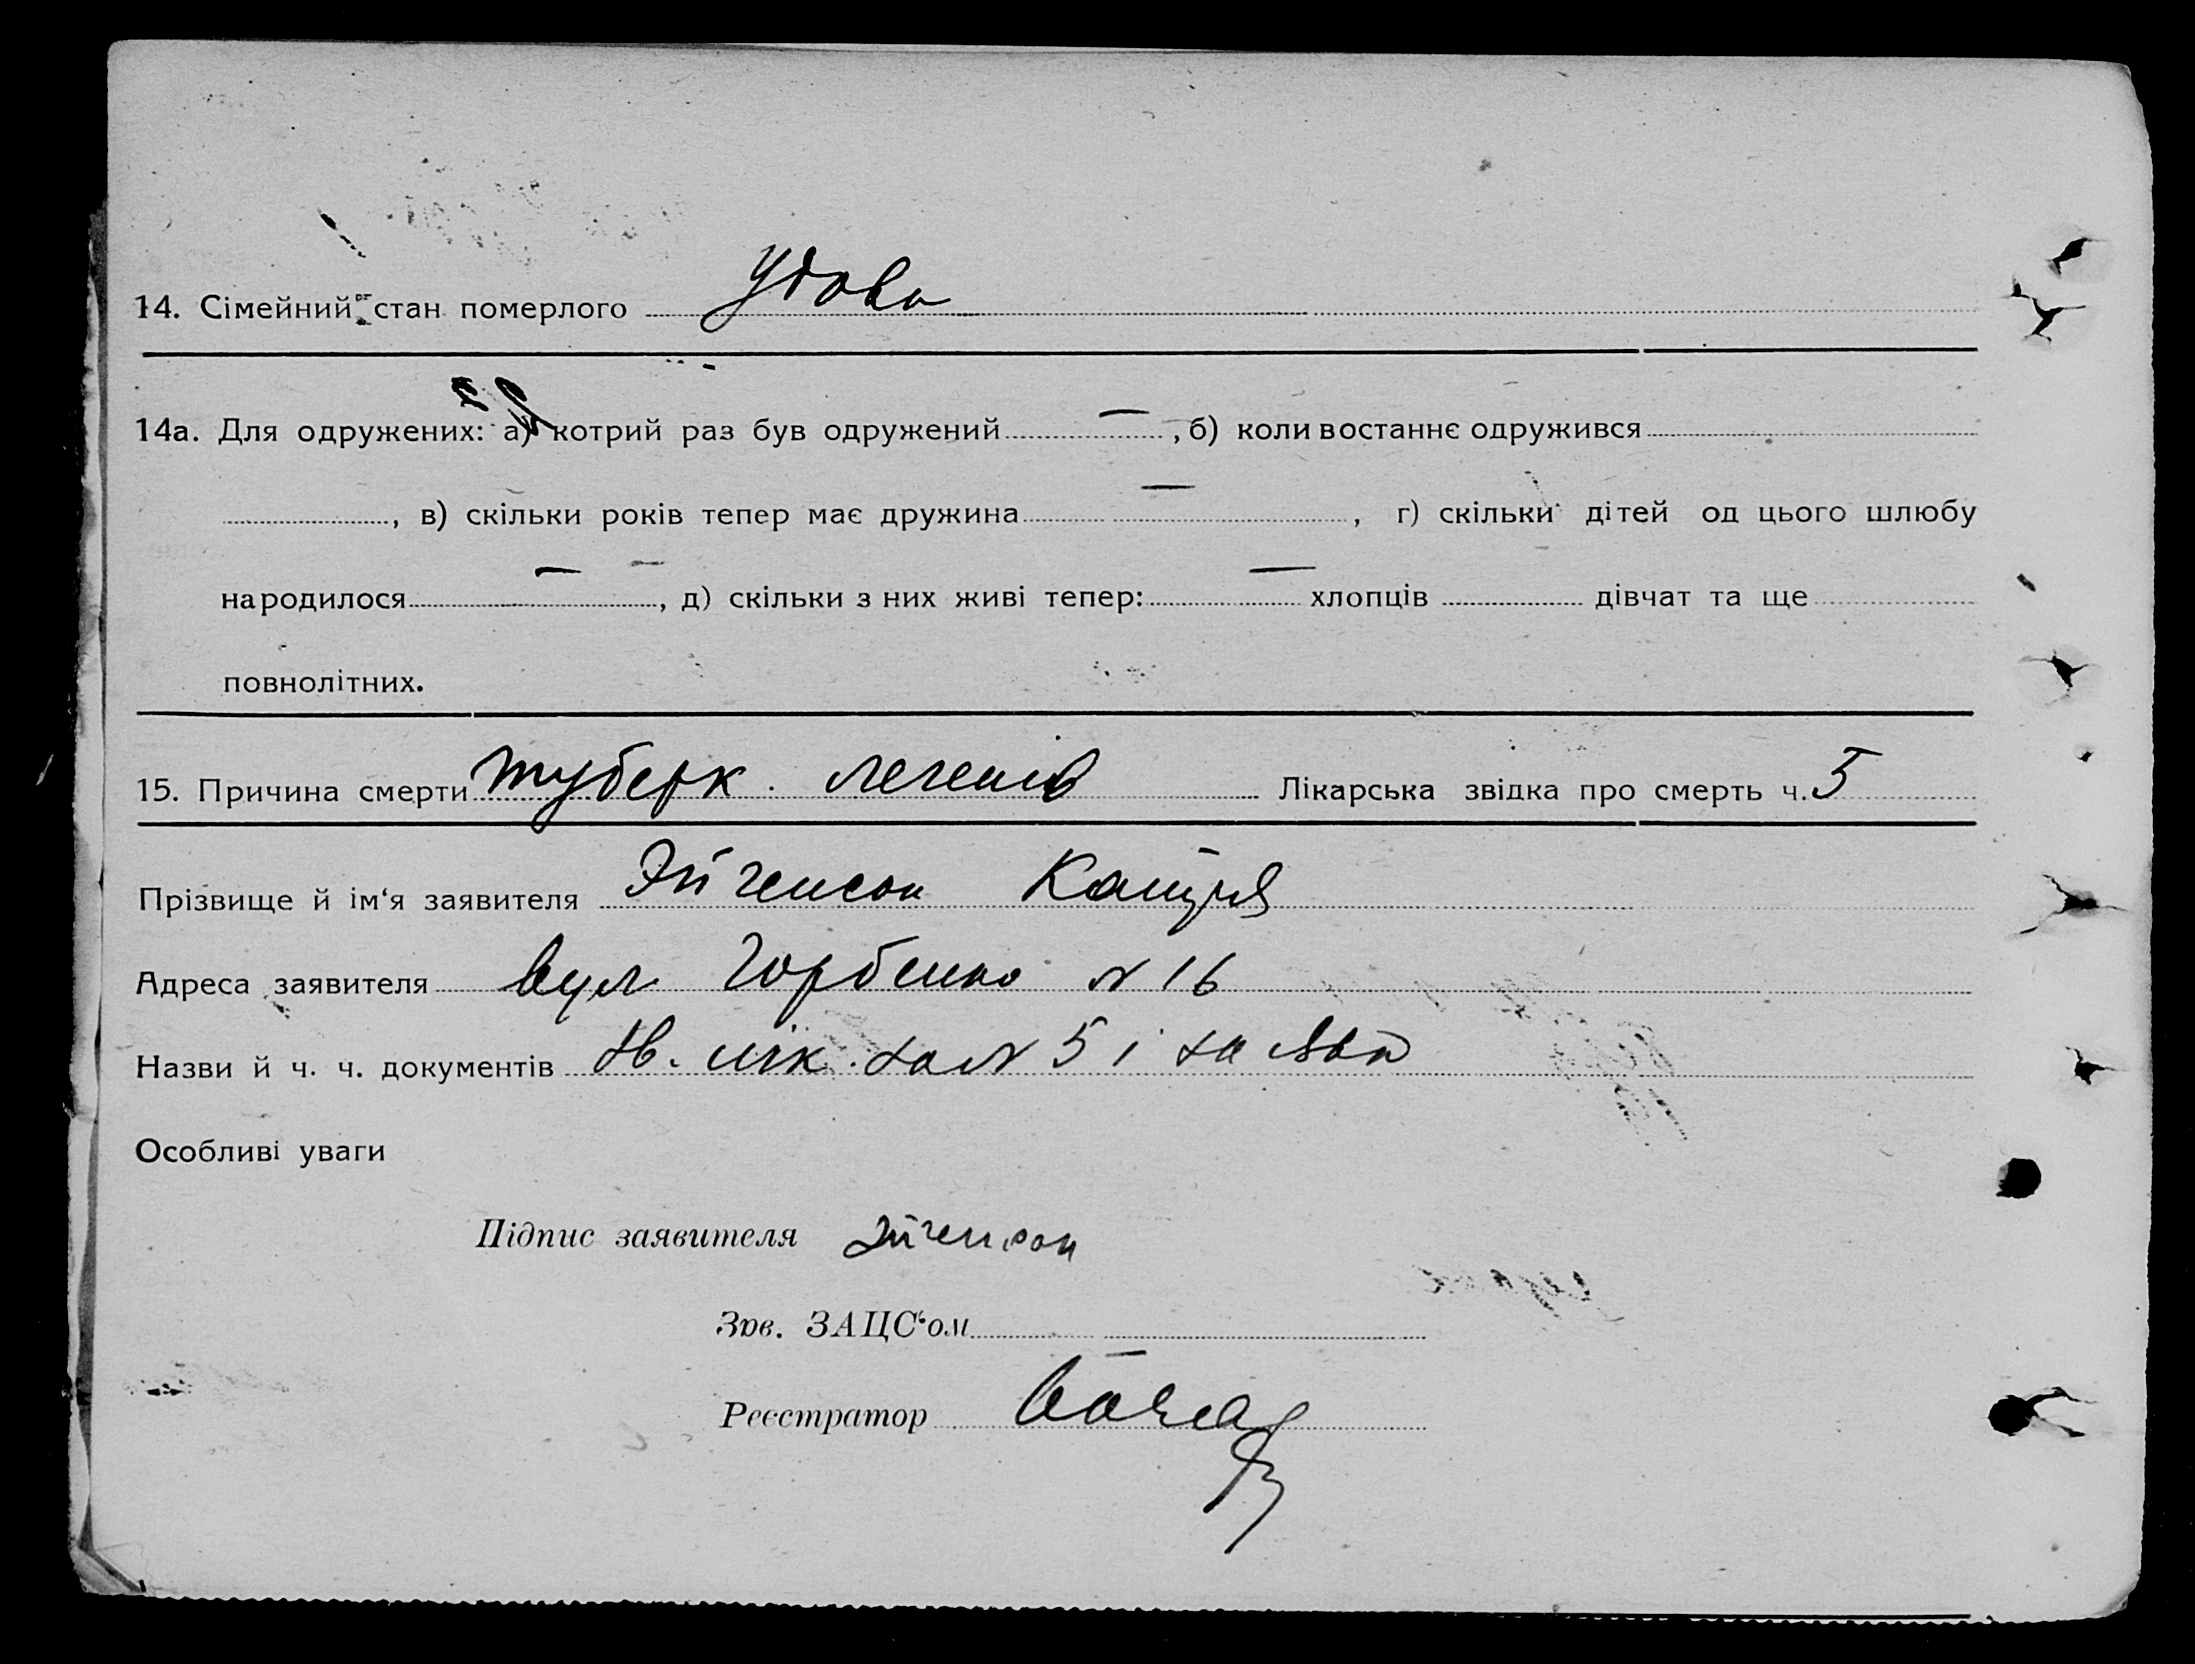 14. Сімейний стан померлого Удова
14а. Для одружених: а) котрий раз був одружений — , б) коли востаннє одружився
, в) скільки років тепер має дружина — , г) скільки дітей од цього шлюбу
народилося — — , д) скільки з них живі тепер: — хлопців дівчат та ще
повнолітних.
15. Причина смерти туберк. легенів Лікарська звідка про смерть ч. 5
Прізвище й ім‘я заявителя Эйгенсон Катря
Адреса заявителя вул Горбенко № 16
Назви й ч. ч. документів лік. № 5 і заява
Особливі уваги
Підпис заявителя Эйгенсон
Зав. ЗАЦС‘ом
Реєстратор